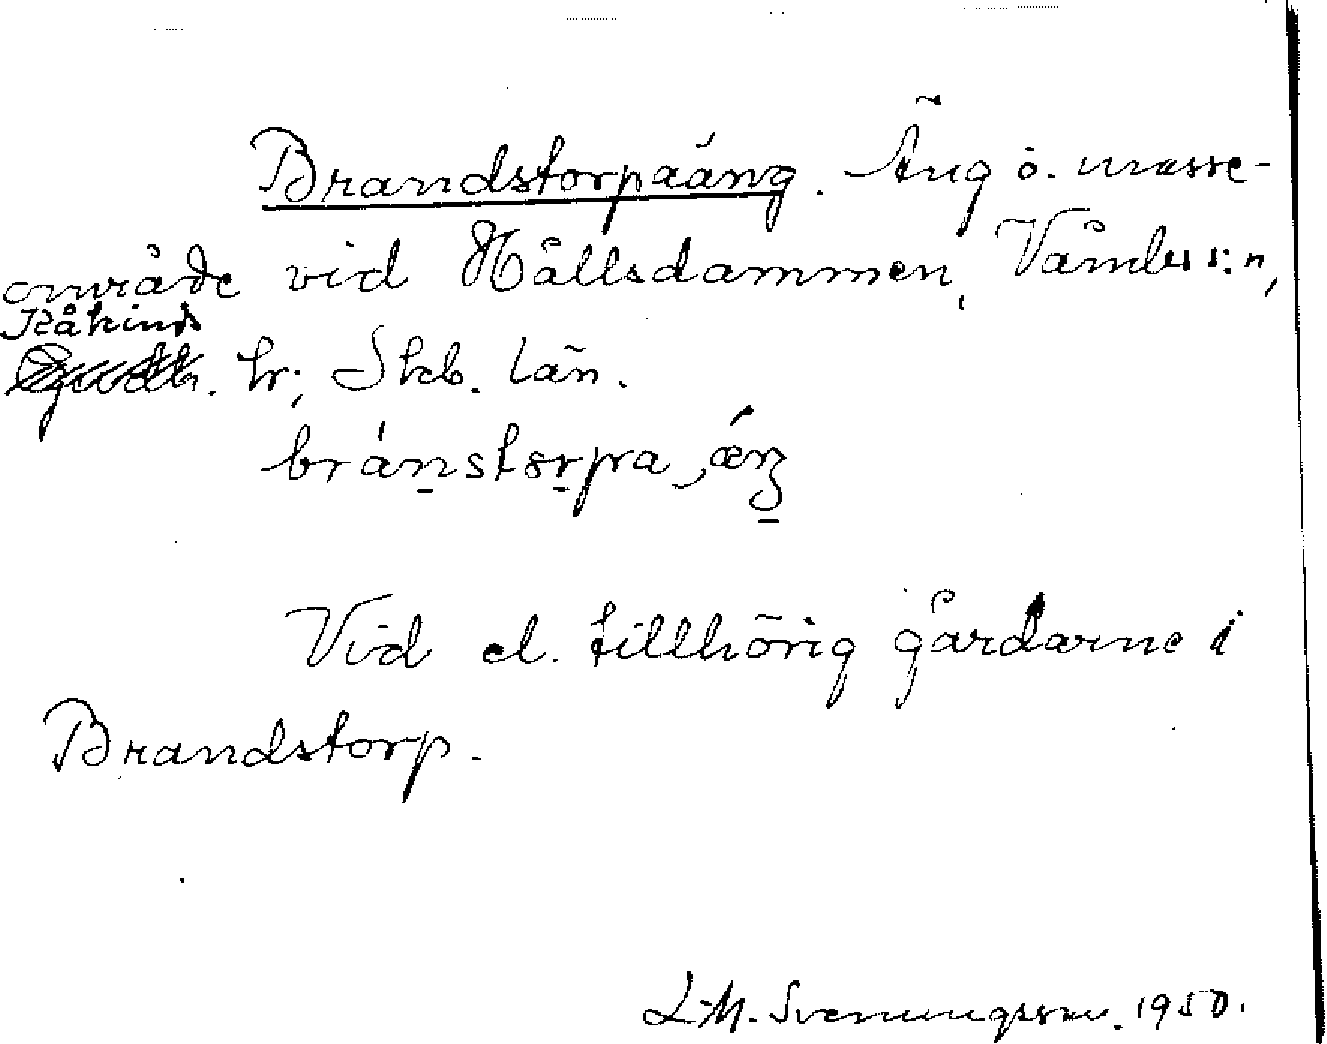 Brandstorpaäng. Äng o. mosse-
område vid Hållsdammen, Våmbs s:n,
Kåkinds
hr; Skb. län.
bránstorpa ‿ ǽŋ
Vid el. tillhörig gårdarne i
Brandstorp.
L.M. Svenungsson. 1950.